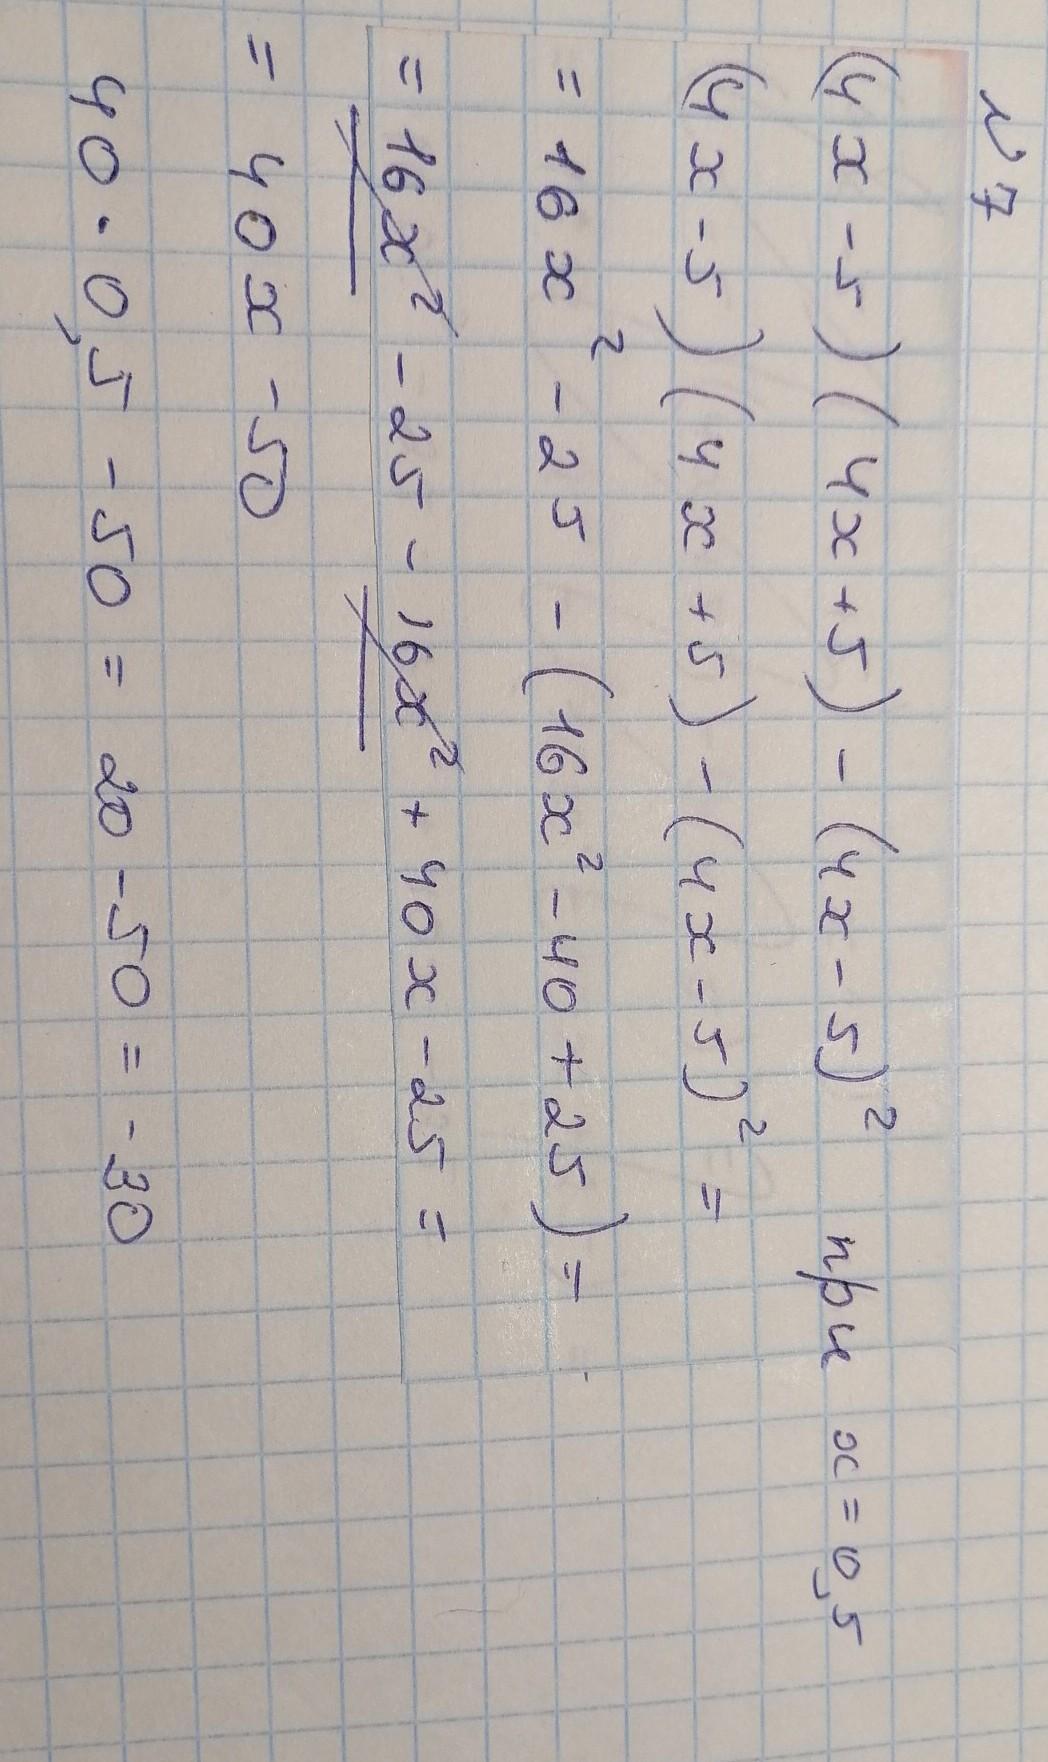 №7
(4x-5)(4x+5)-(4x-5)² при x=0,5
(4x-5)(4x+5)-(4x-5)²=
=16x²-25-(16x²-40+25)=
=16x²-25-16x²+40x-25=
=40x-50
40·0,5-50=20-50=-30